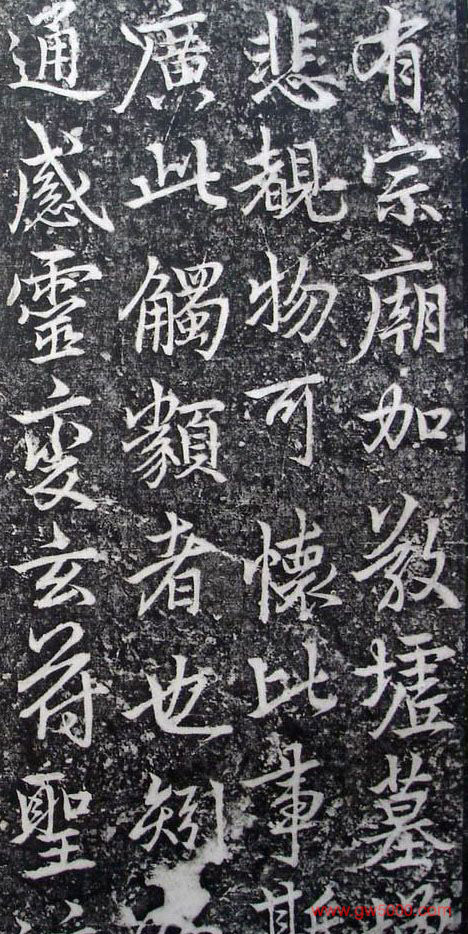 有宗廟加敬墟墓
悲覩物可懷比事
廣此觸類者也矧
通感靈變玄符聖